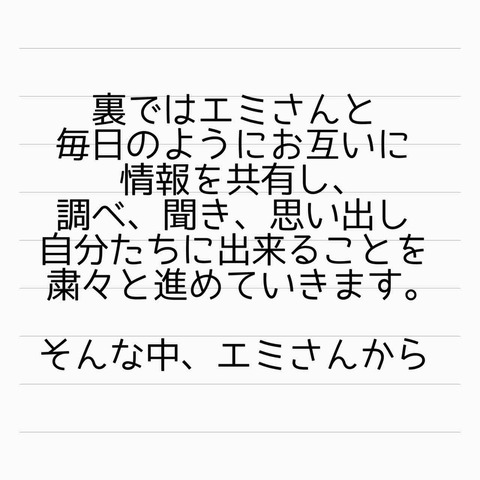 裏ではエミさんと
毎日のようにお互いに
情報を共有し、
調べ、聞き、思い出し
自分たちに出来ることを
粛々と進めていきます。
そんな中、エミさんから